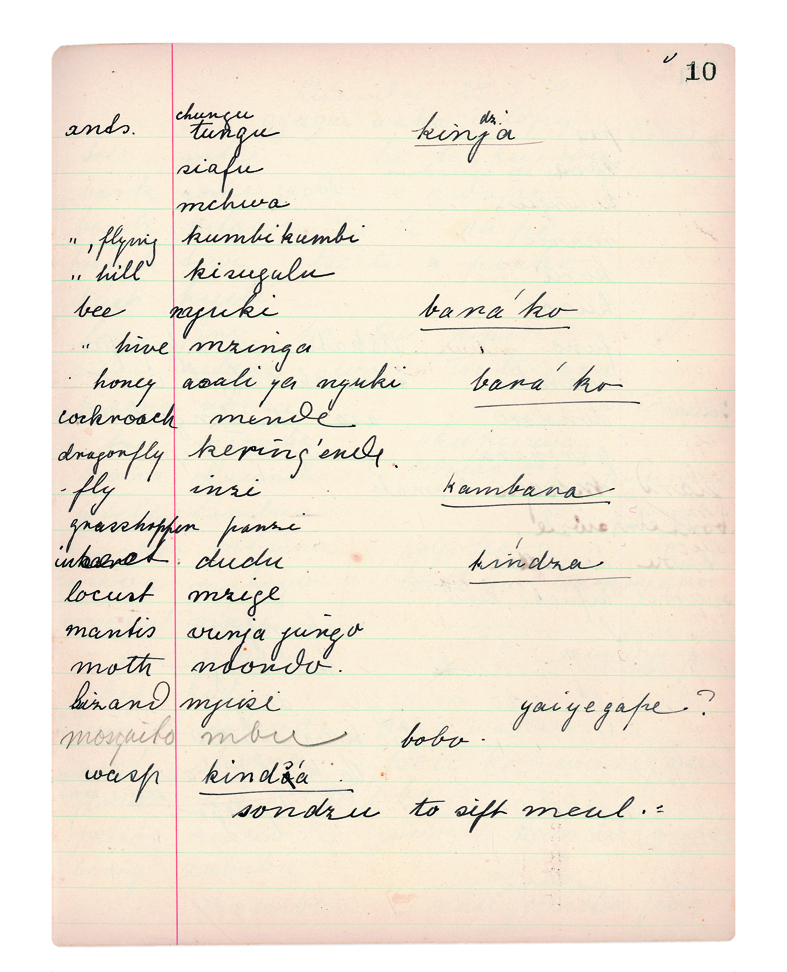 10
chungu dz
ants. tungu kinja
siafu
mchwa
" , flying kumbikumbi
" hill kisugulu
bee nyuki bará ko
" hive mzinga
honey asali ya nyuki bará ko
cockroach mende
dragonfly kering'ende.
fly inzi kambara
grasshopper panzi
dudu kíndza
locust mzige
mantis vunja jungo
moth noondo.
lizard mjusi yaiyegape ?
mosquito mbu bobo.
wasp kindzá .
sondzu to sift meal .=